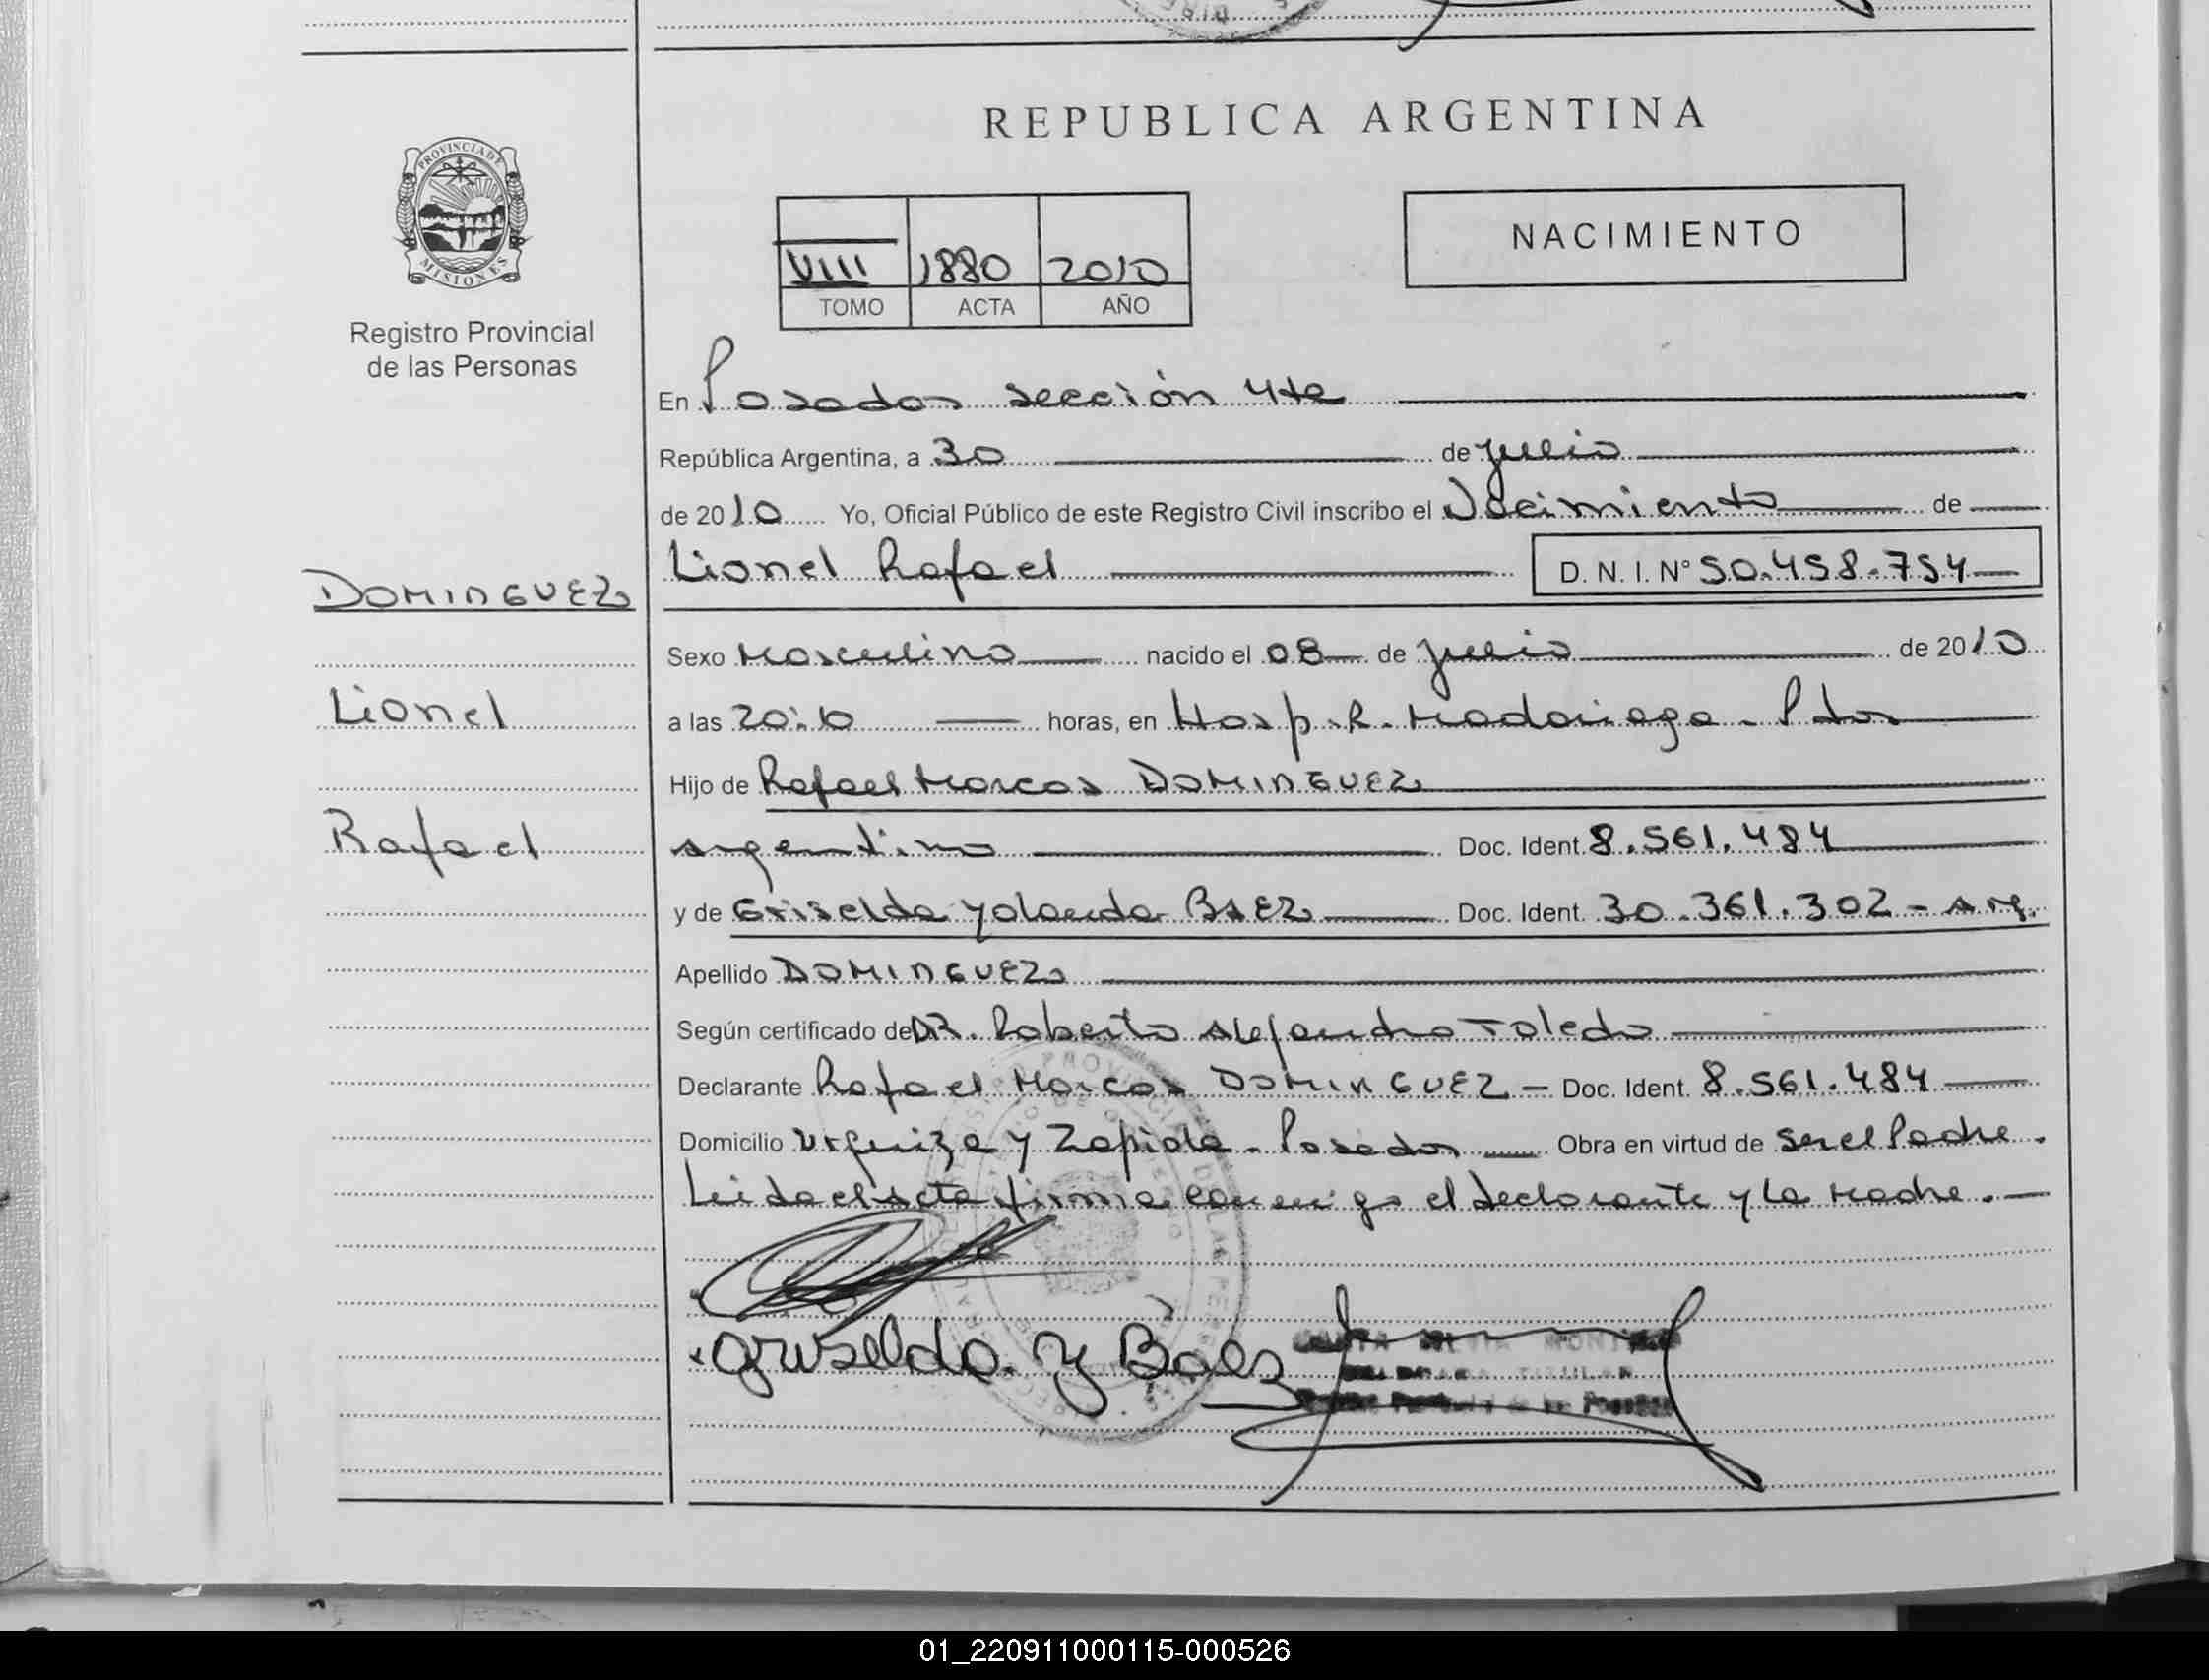 REPUBLICA ARGENTINA
PROVINCIA DE MISIONES
Registro Provincial
de las Personas
NACIMIENTO
VIII 1880 2010
TOMO ACTA AÑO
En Posadas sección 4ta
República Argentina, a 30 de julio
de 2010 Yo, Oficial Público de este Registro Civil inscribo el Nacimiento de
DOMINGUEZ
Lionel
Rafael
Lionel Rafael D. N. I. N° 50.458.754
Sexo Masculino nacido el 08 de julio de 2010
a las 20:10 horas, en Hosp. R. Madariaga - Pdas
Hijo de Rafael Marcos DOMINGUEZ
argentino Doc. Ident. 8.561.484
y de Griselda Yolanda BAEZ Doc. Ident. 30.361.302 - arg.
Apellido DOMINGUEZ
Según certificado de DR. Roberto Alejandro Toledo
Declarante Rafael Marcos DOMINGUEZ - Doc. Ident. 8.561.484
Domicilio Urquiza y Zapiola - Posadas Obra en virtud de ser el Padre.
Leida el acta firma conmigo el declarante y la madre.
Griselda. Y Baez
01_220911000115-000526